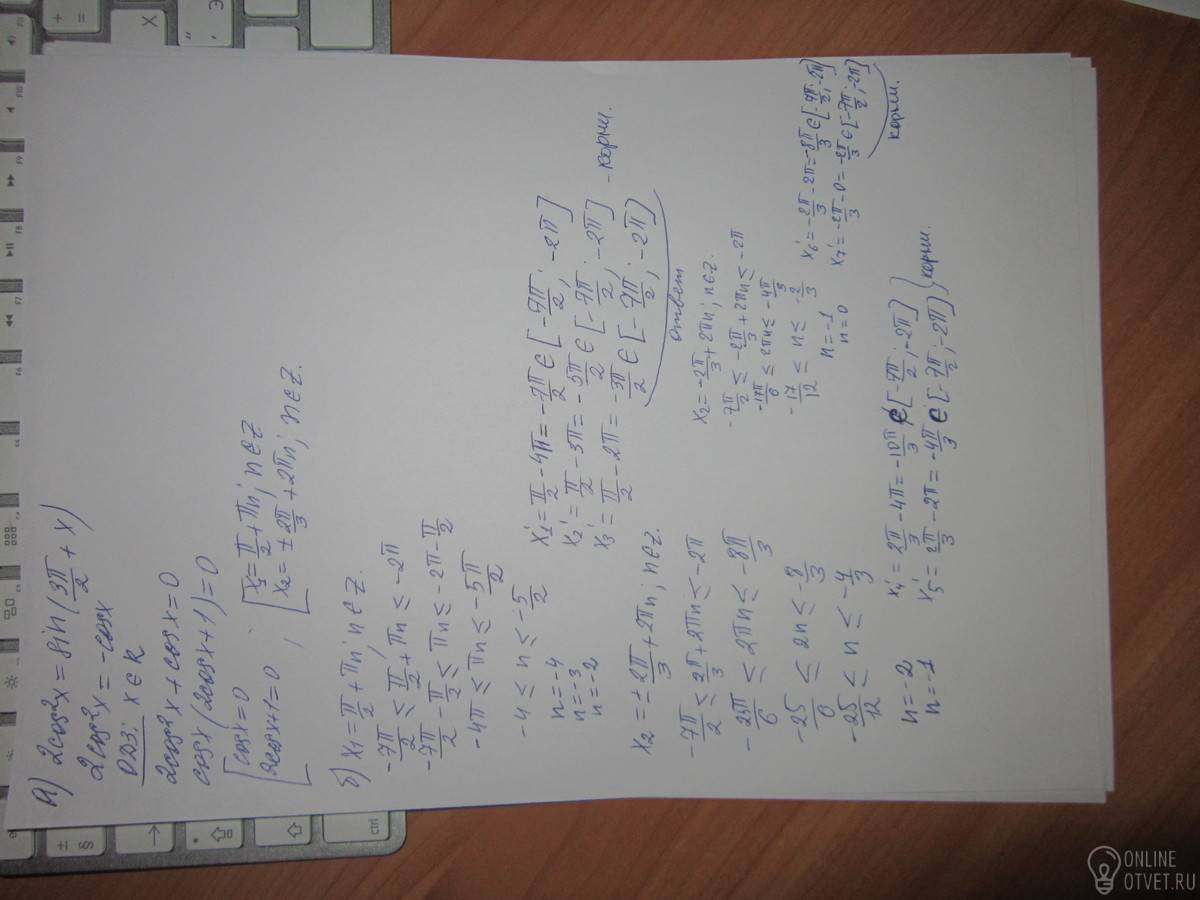 а) 2cos²x = sin(3π/2 + x)
2cos²x = -cosx
ОДЗ: x ∈ R
2cos²x + cosx = 0
cosx(2cosx+1) = 0
[cosx=0
2cosx+1=0 ; [x₁ = π/2 + πn; n∈Z
x₂ = ± 2π/3 + 2πn; n∈Z.
б) x₁ = π/2 + πn; n∈Z.
-7π/2 ≤ π/2 + πn ≤ -2π
-7π/2 - π/2 ≤ πn ≤ -2π - π/2
-4π ≤ πn ≤ -5π/2
-4 ≤ n ≤ -5/2
n=-4
n=-3
n=-2
x₁' = π/2 - 4π = -7π/2 ∈ [-7π/2; -2π]
x₂' = π/2 - 3π = -5π/2 ∈ [-7π/2; -2π] - корни.
x₃' = π/2 - 2π = -3π/2 ∈ [-7π/2; -2π]
ответ
x₂ = ± 2π/3 + 2πn; n∈Z.
-7π/2 ≤ 2π/3 + 2πn ≤ -2π
-25π/6 ≤ 2πn ≤ -8π/3
-25/6 ≤ 2n ≤ -8/3
-25/12 ≤ n ≤ -4/3
n=-2
n=-1
x₄' = 2π/3 - 4π = -10π/3 ∈ [-7π/2; -2π]
x₅' = 2π/3 - 2π = -4π/3 ∈ [-7π/2; -2π] } корни.
x₂ = -2π/3 + 2πn; n∈Z.
-7π/2 ≤ -2π/3 + 2πn ≤ -2π
-17π/6 ≤ 2πn ≤ -4π/3
-17/12 ≤ n ≤ -2/3
n=-1
n=0
x₆' = -2π/3 - 2π = -8π/3 ∈ [-7π/2; -2π]
x₇' = -2π/3 - 0 = -2π/3 ∈ [-7π/2; -2π]
корни.
ctrl
ONLINE
OTVET.RU